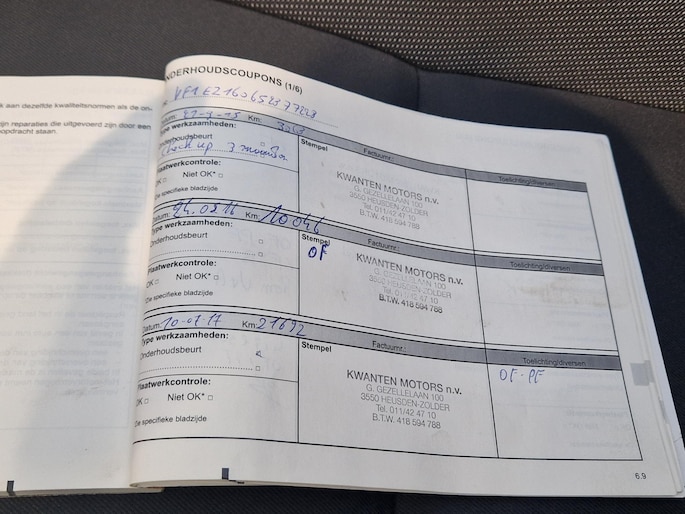 k aan dezelfde kwaliteitsnormen als de on-
zijn reparaties die uitgevoerd zijn door een
opdracht staan.
NDERHOUDSCOUPONS (1/6)
Datum: Km: 3063
Type werkzaamheden:
Onderhoudsbeurt
Check up 3 maanden
Plaatwerkcontrole:
OK □ Niet OK* □
De specifieke bladzijde
Stempel Factuurnr.: Toelichting/diversen
KWANTEN MOTORS n.v.
G. GEZELLELAAN 100
3550 HEUSDEN-ZOLDER
Tel. 011/42 47 10
B.T.W. 418 594 788
Datum: 24.02.16 Km: 10046
Type werkzaamheden:
Onderhoudsbeurt □
□
Plaatwerkcontrole:
OK □ Niet OK* □
De specifieke bladzijde
Stempel Factuurnr.: Toelichting/diversen
OF
KWANTEN MOTORS n.v.
G. GEZELLELAAN 100
3550 HEUSDEN-ZOLDER
Tel. 011/42 47 10
B.T.W. 418 594 788
Datum: 10-01-17 Km: 21692
Type werkzaamheden:
Onderhoudsbeurt
□
Plaatwerkcontrole:
OK □ Niet OK* □
De specifieke bladzijde
Stempel Factuurnr.: Toelichting/diversen
OF-PF
KWANTEN MOTORS n.v.
G. GEZELLELAAN 100
3550 HEUSDEN-ZOLDER
Tel. 011/42 47 10
B.T.W. 418 594 788
6.9